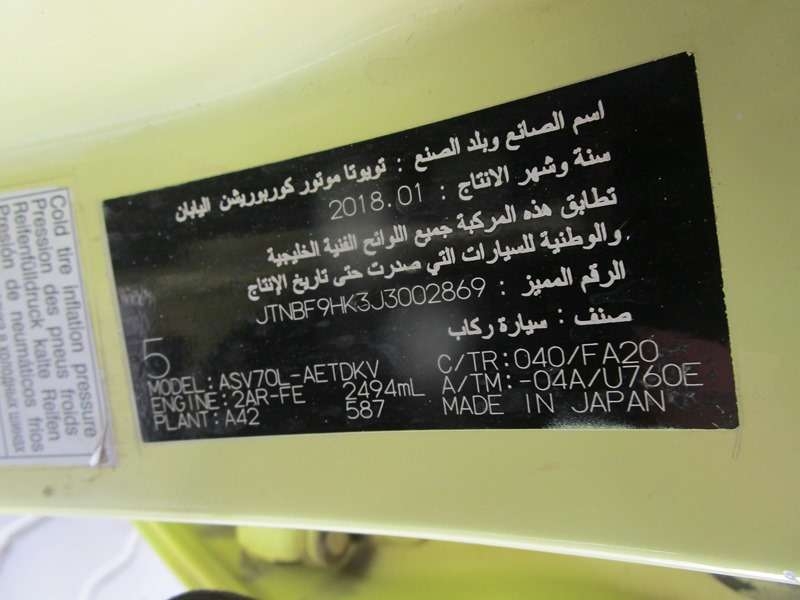 اسم الصانع وبلد الصنع : تويوتا موتور كوربوريشن اليابان
سنة وشهر الانتاج : 2018.01
تطابق هذه المركبة جميع اللوائح الفنية الخليجية
والوطنية للسيارات التي صدرت حتى تاريخ الإنتاج
الرقم المميز : JTNBF9HK3J3002869
صنف : سيارة ركاب
5
MODEL: ASV70L-AETDKV C/TR: 040/FA20
ENGINE: 2AR-FE 2494mL A/TM: -04A/U760E
PLANT: A42 587 MADE IN JAPAN
Cold tire inflation pressure
Pression des pneus froids
Reifenfülldruck kalte Reifen
Presión de neumáticos fríos
в холодных шинах